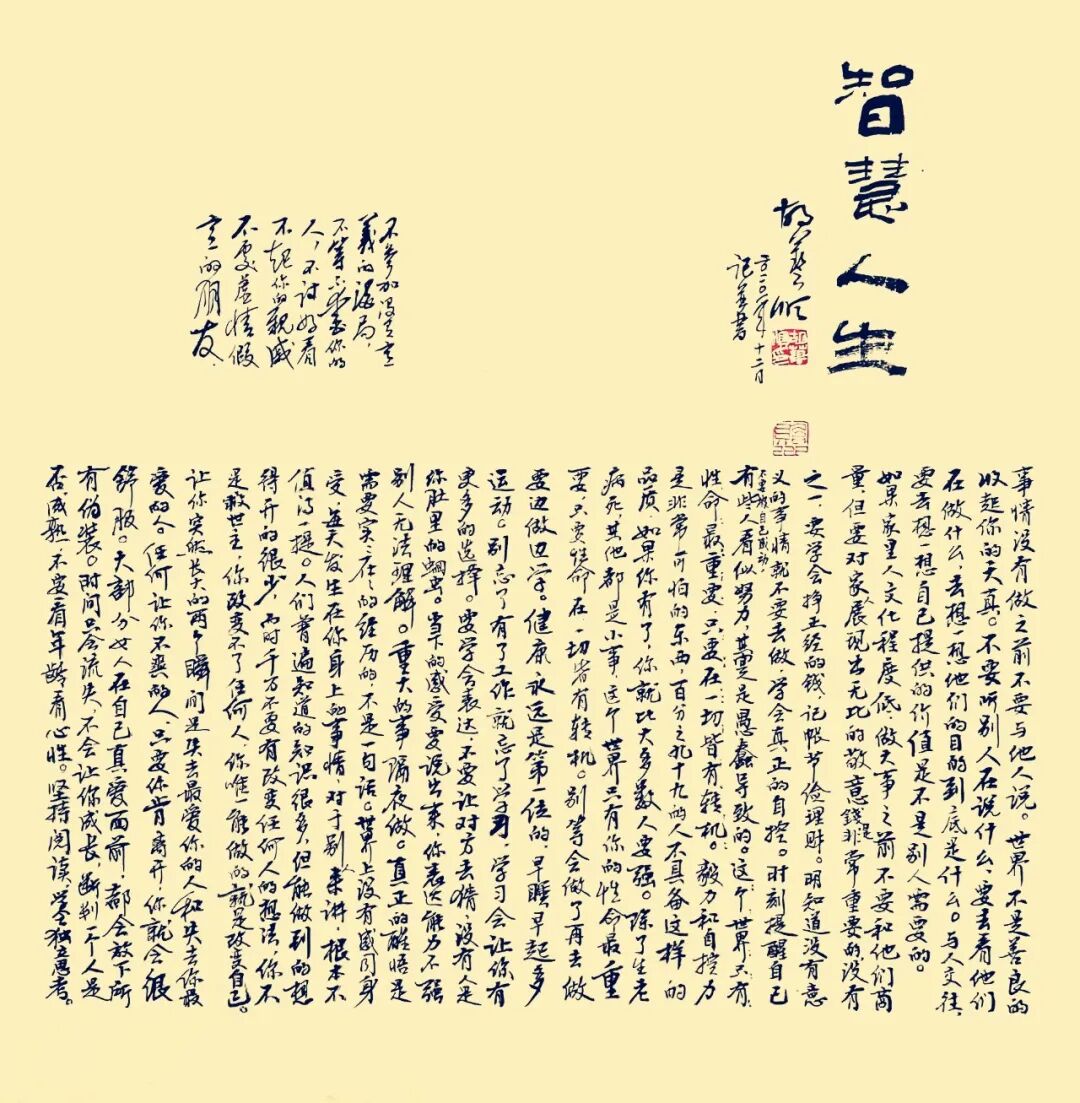 智慧人生
二〇二〇年十二月
记并书
不参加没有意
义的酒局,
不等不爱你的
人,不讨好看
不起你的亲戚
不处虚情假
意的朋友.
事情没有做之前不要与他人说。世界不是善良的
收起你的天真。不要听别人在说什么,要去看他们
在做什么,去想一想他们的目的到底是什么。与人交往,
要去想一想自己提供的价值是不是别人需要的。
如果家里人文化程度低,做大事之前不要和他们商
量,但要对家人展现出无比的敬意钱是非常重要的没有
之一,要学会挣正经的钱,记帐节俭理财。明知道没有意
义的事情就不要去做,学会真正的自控。时刻提醒自己
不要被自己感动。
有些人看似努力,其实是愚蠢导致的。这个世界只有
性命最重要,只要在一切皆有转机。毅力和自控力
是非常可怕的东西百分之九十九的人不具备这样的
品质,如果你有了,你就比大多数人要强。除了生老
病死,其他都是小事,这个世界只有你的性命最重
要,只要性命在一切皆有转机。别等会做了再去做
要边做边学。健康永远是第一位的,早睡早起多
运动。别忘了有了工作就忘了学习,学习会让你有
更多的选择。要学会表达,不要让对方去猜,没有人是
你肚里的蛔虫。当下的感受要说出来,你表达能力不强
别人无法理解。重大的事隔夜做。真正的醒悟是
需要实实在在的经历的,不是一句话。世界上没有感同身
受,每天发生在你身上的事情,对于别人来讲,根本不
值得一提。人们普遍知道的知识很多,但能做到的想
得开的很少,而时千万不要有改变任何人的想法,你不
是救世主,你改变不了任何人,你唯一能做的就是改变自己。
让你突然长大的两个瞬间是失去最爱你的人和失去你最
爱的人。任何让你不爽的人,只要你肯离开,你就会很
舒服。大部分女人在自己真爱面前,都会放下所
有伪装。时间只会流失,不会让你成长,断判一个人是
否成熟,不要看年龄看心性。坚持阅读,学会独立思考。